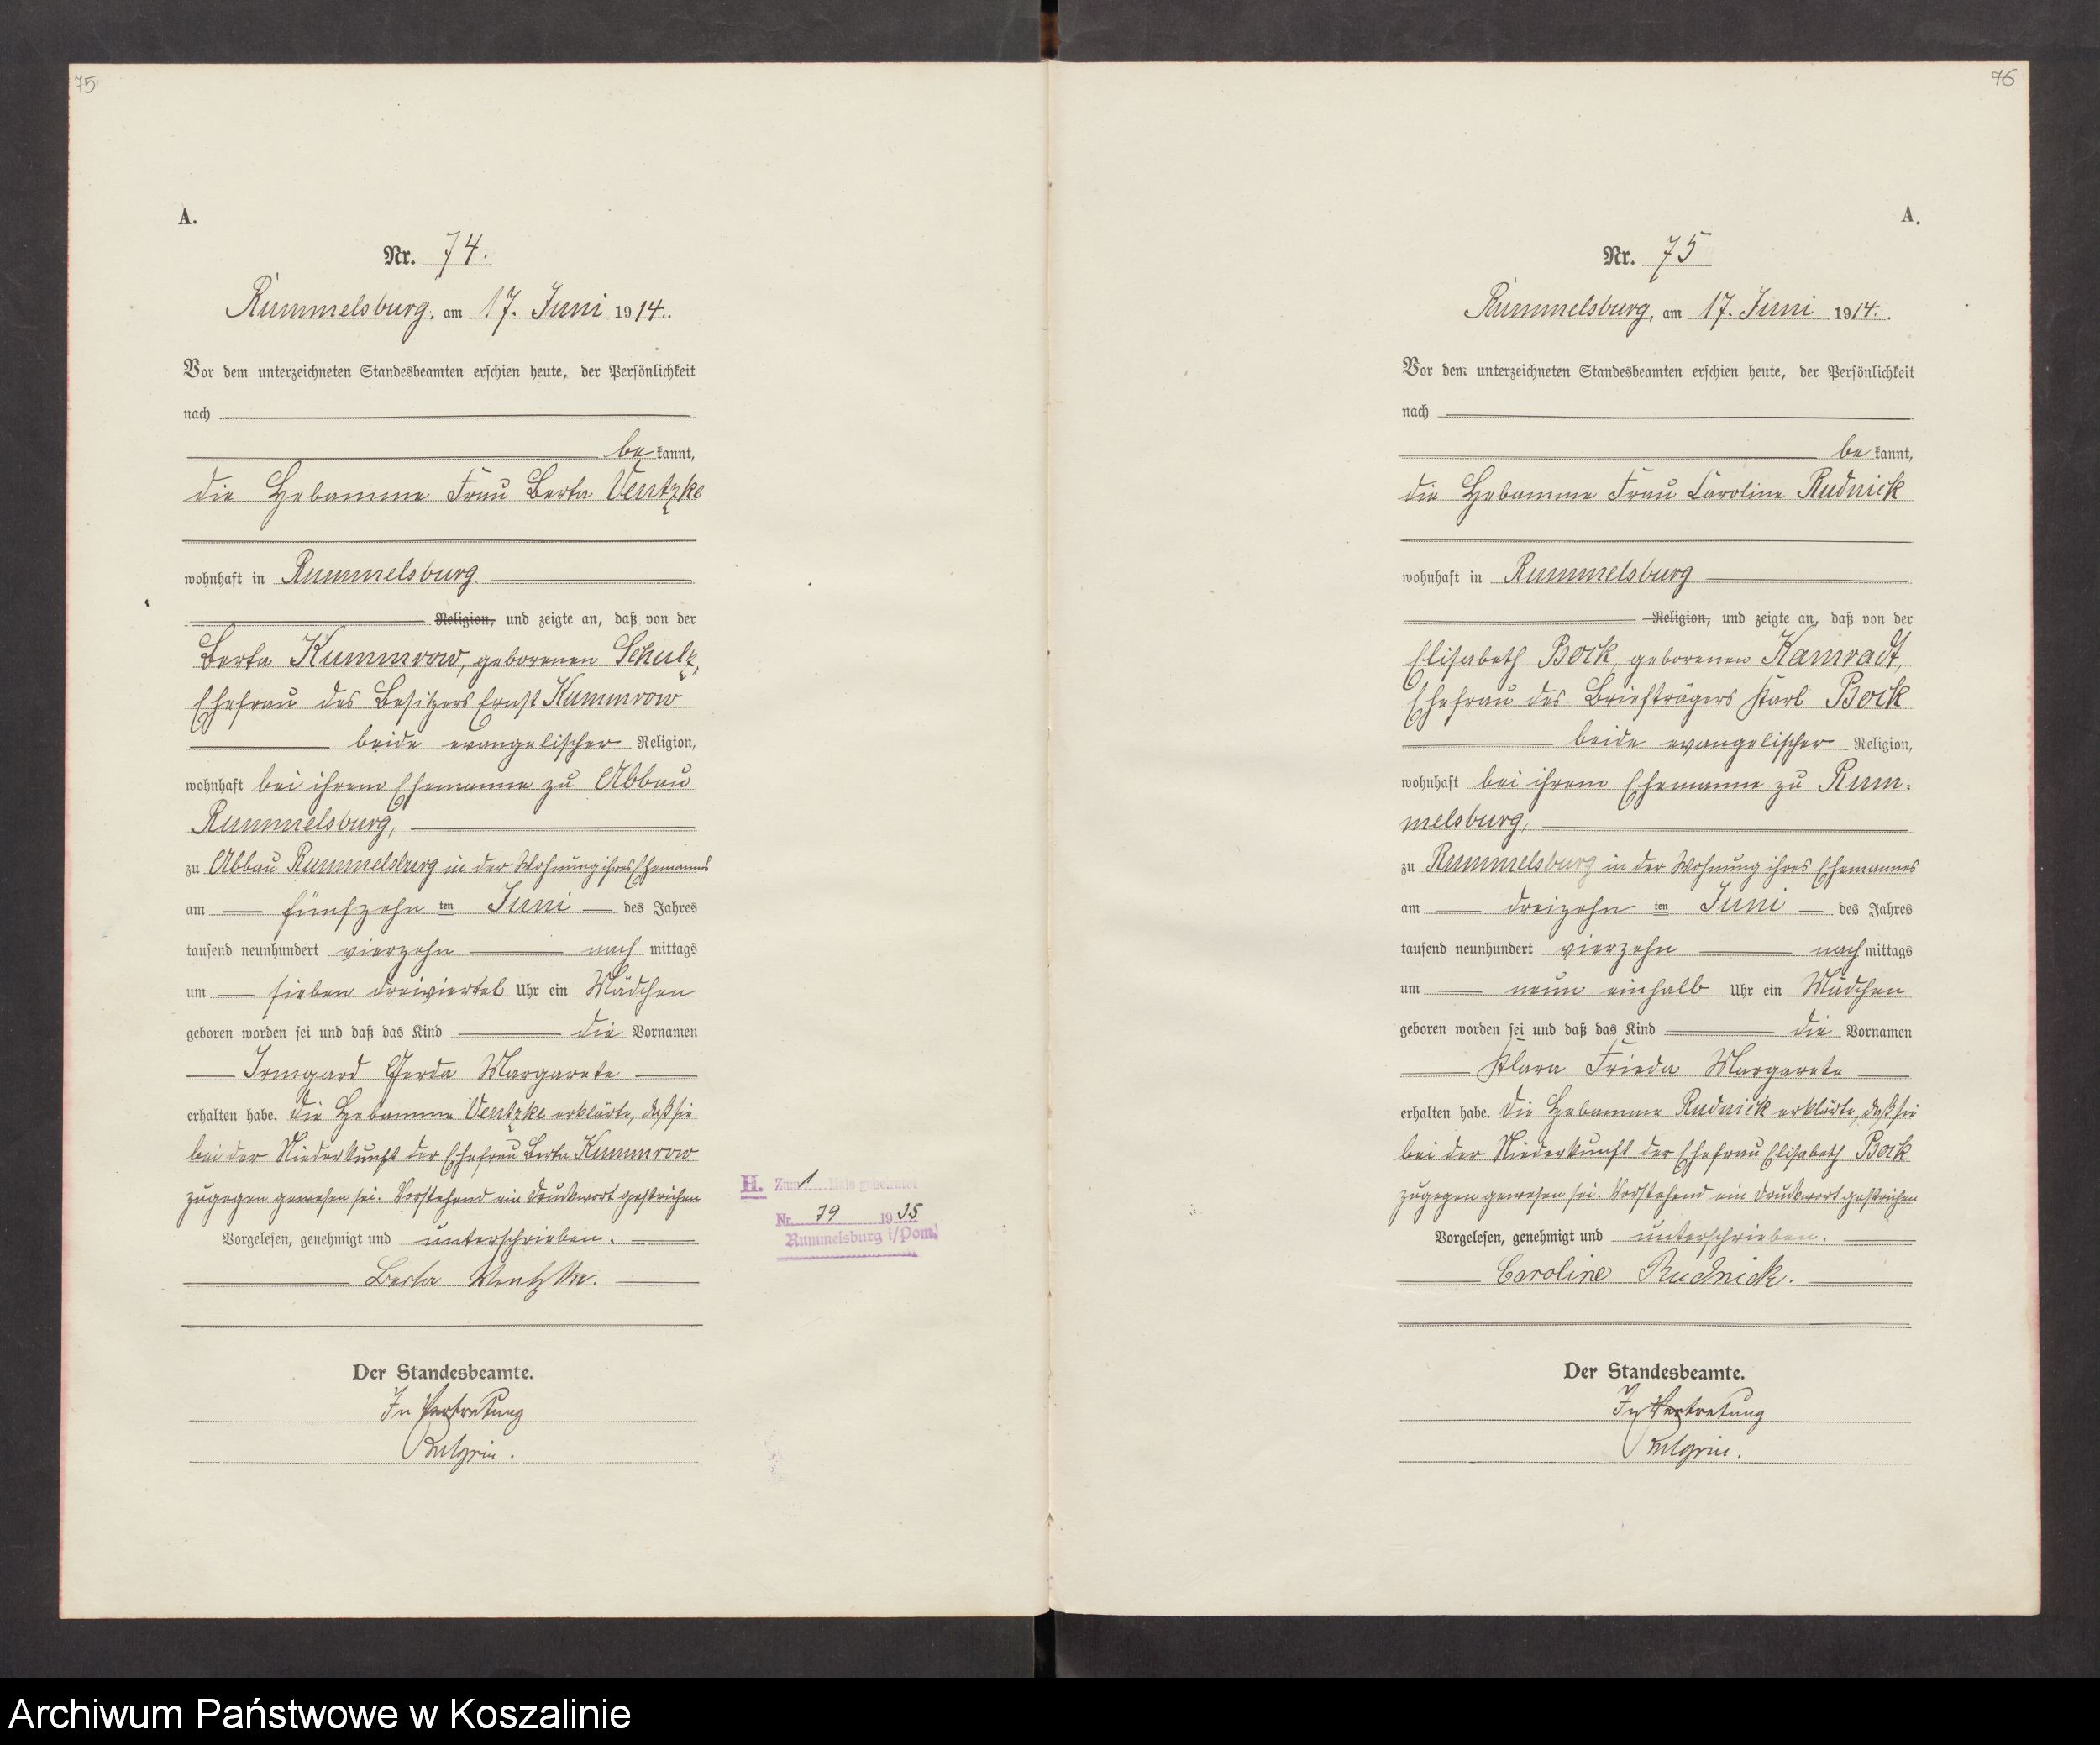 75
A.
Nr. 74.
Rummelsburg, am 17. Juni 1914.
Vor dem unterzeichneten Standesbeamten erschien heute, der Persönlichkeit
nach
be kannt,
die Hebamme Frau Berta Ventzke
wohnhaft in Rummelsburg
Religion, und zeigte an, daß von der
Berta Kummrow, geborenen Schulz,
Ehefrau des Besitzers Ernst Kummrow
beide evangelischer Religion,
wohnhaft bei ihrem Ehemanne zu Abbau
Rummelsburg,
zu Abbau Rummelsburg in der Wohnung ihres Ehemannes
am fünfzehn ten Juni des Jahres
tausend neunhundert vierzehn nach mittags
um sieben dreiviertel Uhr ein Mädchen
geboren worden sei und daß das Kind die Vornamen
Irmgard Gerda Margarete
erhalten habe. Die Hebamme Ventzke erklärte, daß sie
bei der Niederkunft der Ehefrau Berta Kummrow
zugegen gewesen sei. Vorstehend ein Druckwort gestrichen
Vorgelesen, genehmigt und unterschrieben.
Berta Wentzke.
Der Standesbeamte.
In Vertretung
H. Zum 1 Male geheiratet
Nr. 79 1935
Rummelsburg i/Pom.
76
A.
Nr. 75
Rummelsburg, am 17. Juni 1914.
Vor dem unterzeichneten Standesbeamten erschien heute, der Persönlichkeit
nach
be kannt,
die Hebamme Frau Caroline Rudnick
wohnhaft in Rummelsburg
Religion, und zeigte an, daß von der
Elisabeth Bock, geborenen Kamradt,
Ehefrau des Briefträgers Karl Bock
beide evangelischer Religion,
wohnhaft bei ihrem Ehemanne zu Rum-
melsburg,
zu Rummelsburg in der Wohnung ihres Ehemannes
am dreizehn ten Juni des Jahres
tausend neunhundert vierzehn nach mittags
um neun einhalb Uhr ein Mädchen
geboren worden sei und daß das Kind die Vornamen
Klara Frieda Margarete
erhalten habe. Die Hebamme Rudnick erklärte, daß sie
bei der Niederkunft der Ehefrau Elisabeth Bock
zugegen gewesen sei. Vorstehend ein Druckwort gestrichen
Vorgelesen, genehmigt und unterschrieben.
Caroline Rudnick.
Der Standesbeamte.
In Vertretung
Archiwum Państwowe w Koszalinie